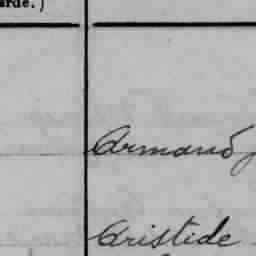 arde.)
Armand
Aristide